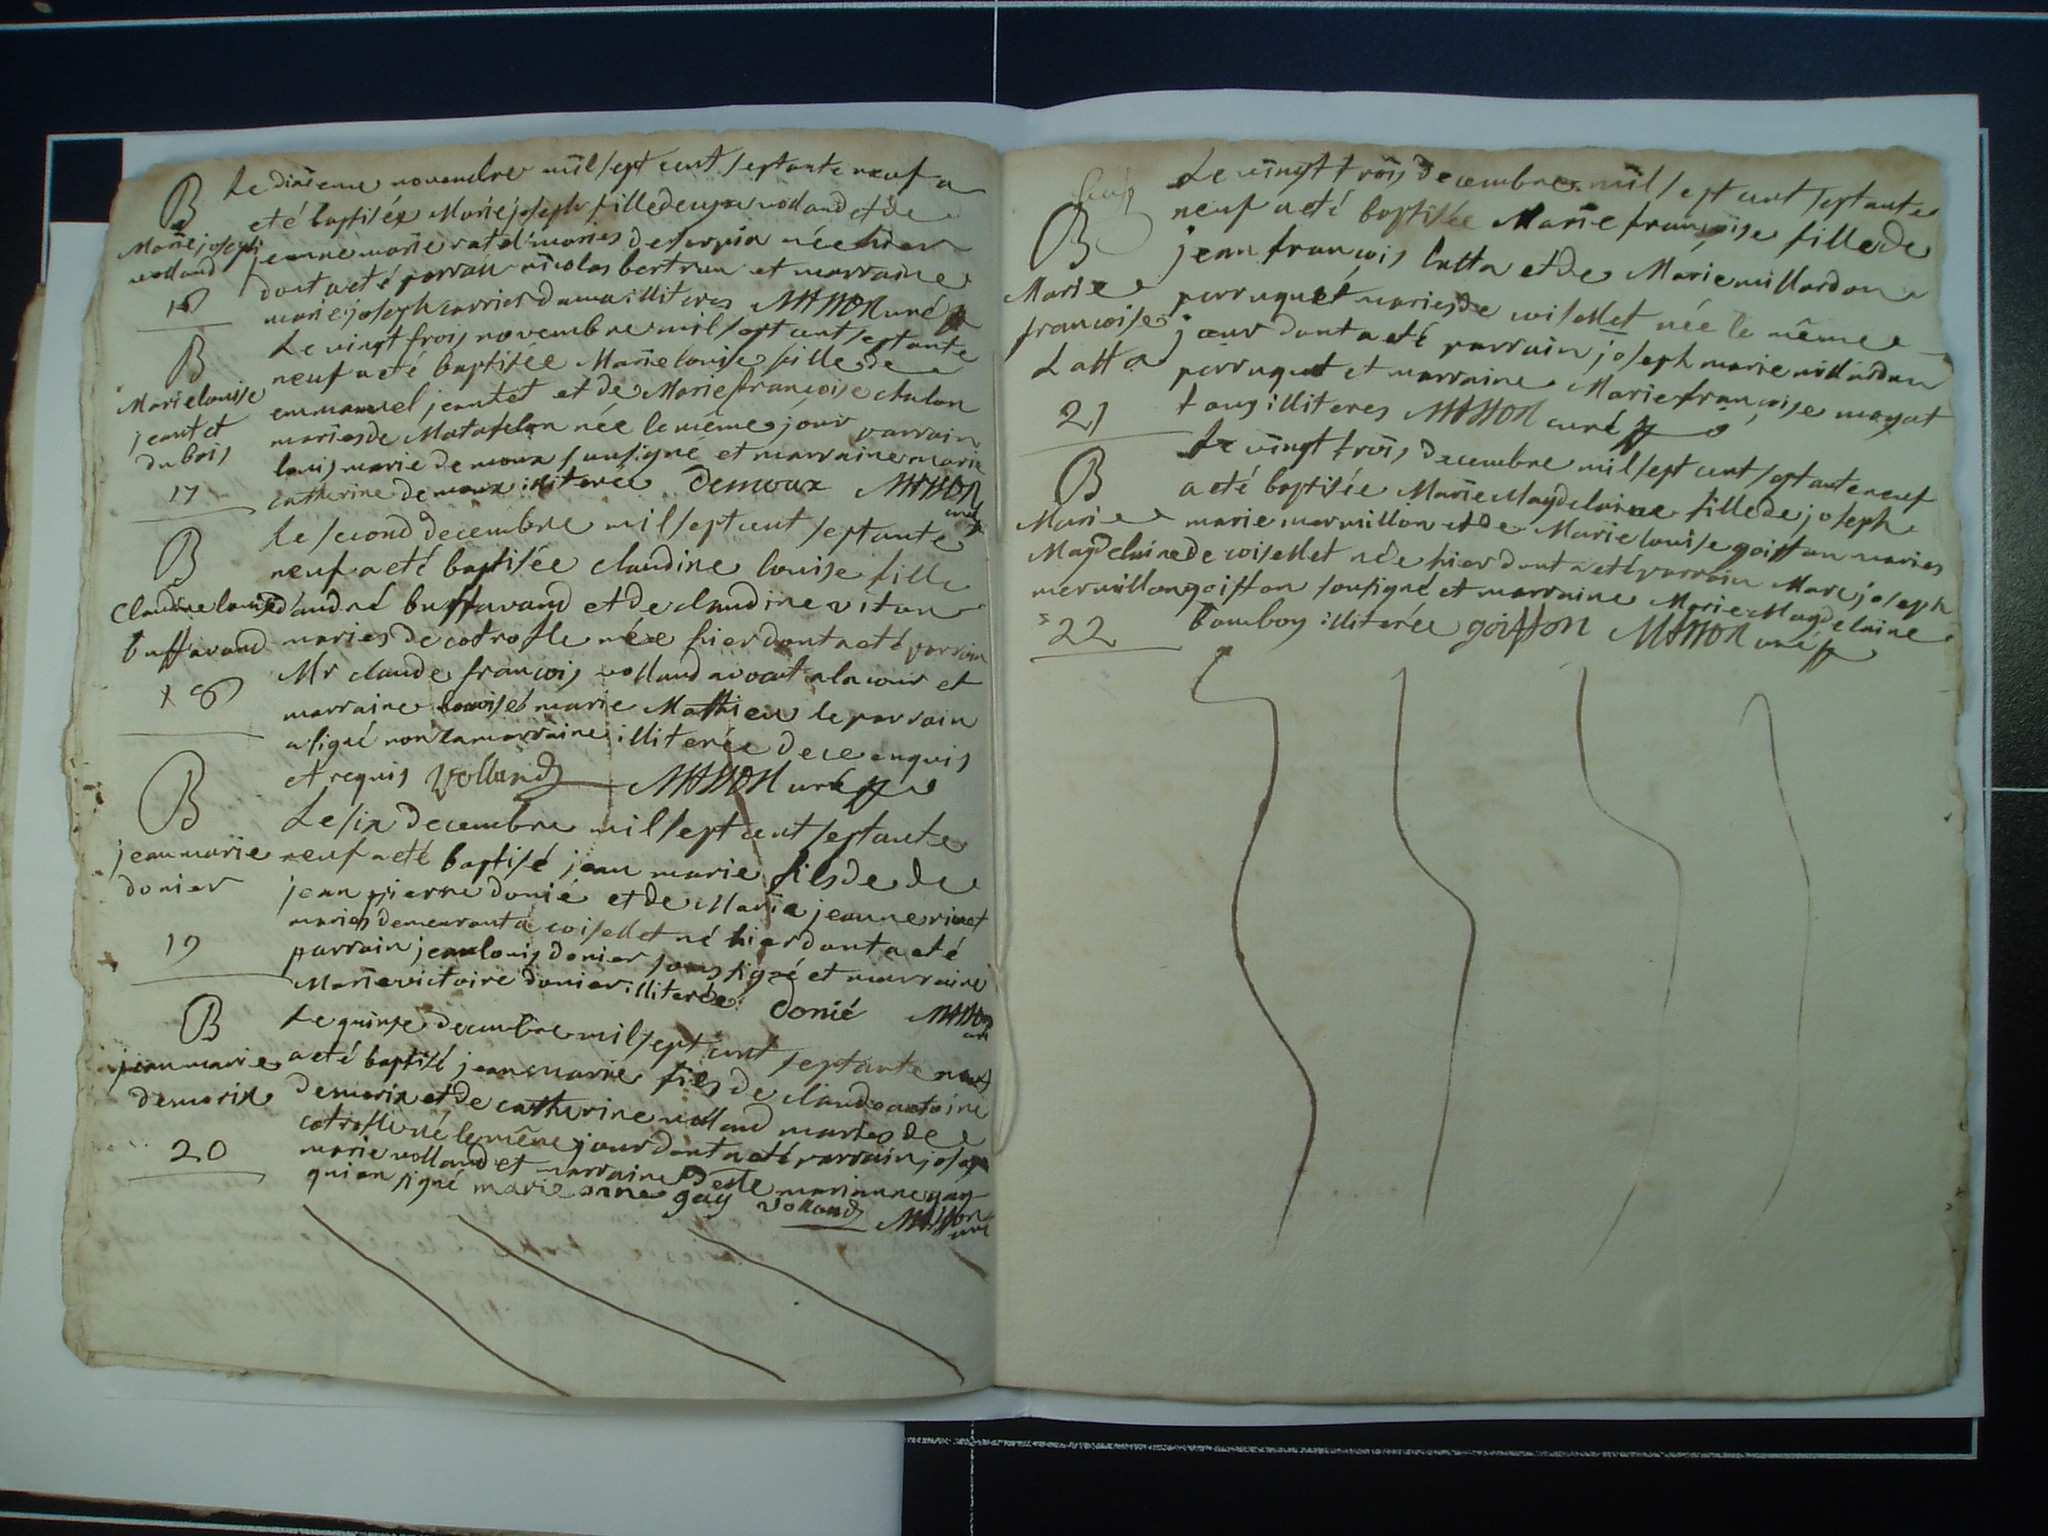 B
Marie joseph
volland
16
Le dixieme novembre mil sept cent septante neuf a
eté baptisée Marie joseph fille de volland et de
jeanne marie ratel maries de née hier
dont a eté parrain nicolas bertrun et marraine
marie joseph carrier illiteres MASSON curé
B
Marie louise
jeantet
dubois
17
Le vingt trois novembre mil sept cent septante
neuf a eté baptisée Marie louise fille de
emmanuel jeantet et de Marie françoise chalon
maries de Matafelon née le même jour parrain
louis marie demoux sousigné et marraine marie
catherine demoux illiterée Demoux MASSON
curé
B
Claudine louise
buffavand
18
le second decembre mil sept cent septante
neuf a eté baptisée claudine louise fille
d'andré buffavand et de claudine vitan
maries de cotrofle née hier dont a eté parrain
Mr claude françois volland avocat a la cour et
marraine louise marie Mathieu le parrain
a signé non la marraine illiterée de ce enquis
et requis Volland MASSON curé
B
jean marie
donier
19
Le six decembre mil sept cent septante
neuf a eté baptisé jean marie fils de de
jean pierre donié et de Marie jeanne
maries demeurant a coisellet né hier dont a eté
parrain jean louis donier soussigné et marraine
Marie victoire donier illiterée Donié MASSON
curé
B
jean marie
demorix
20
Le quinse decembre mil sept cent septante neuf
a eté baptisé jean marie fils de claude antoine
demorix et de catherine volland maries de
cotrofle né le même jour dont a eté parrain joseph
marie volland et marraine marianne gay
qui on signé marie anne gay Volland MASSON
curé
B
Marie
francoise
Latta
21
Le vingt trois decembre mil sept cent septante
neuf a eté baptisée Marie françoise fille de
jean françois latta et de Marie millardon
perruquet maries de coisellet née le même
jour dont a eté parrain joseph marie millardon
perruquet et marraine Marie françoise moyat
tous illiteres MASSON curé
B
Marie
Magdelaine
mermillon
22
Le vingt trois decembre mil sept cent septante neuf
a eté baptisée Marie Magdelaine fille de joseph
marie mermillon et de Marie louise goiffon maries
de coisellet née hier dont a eté parrain Marc joseph
goiffon sousigné et marraine Marie Magdelaine
bomboy illiterée goiffon MASSON curé